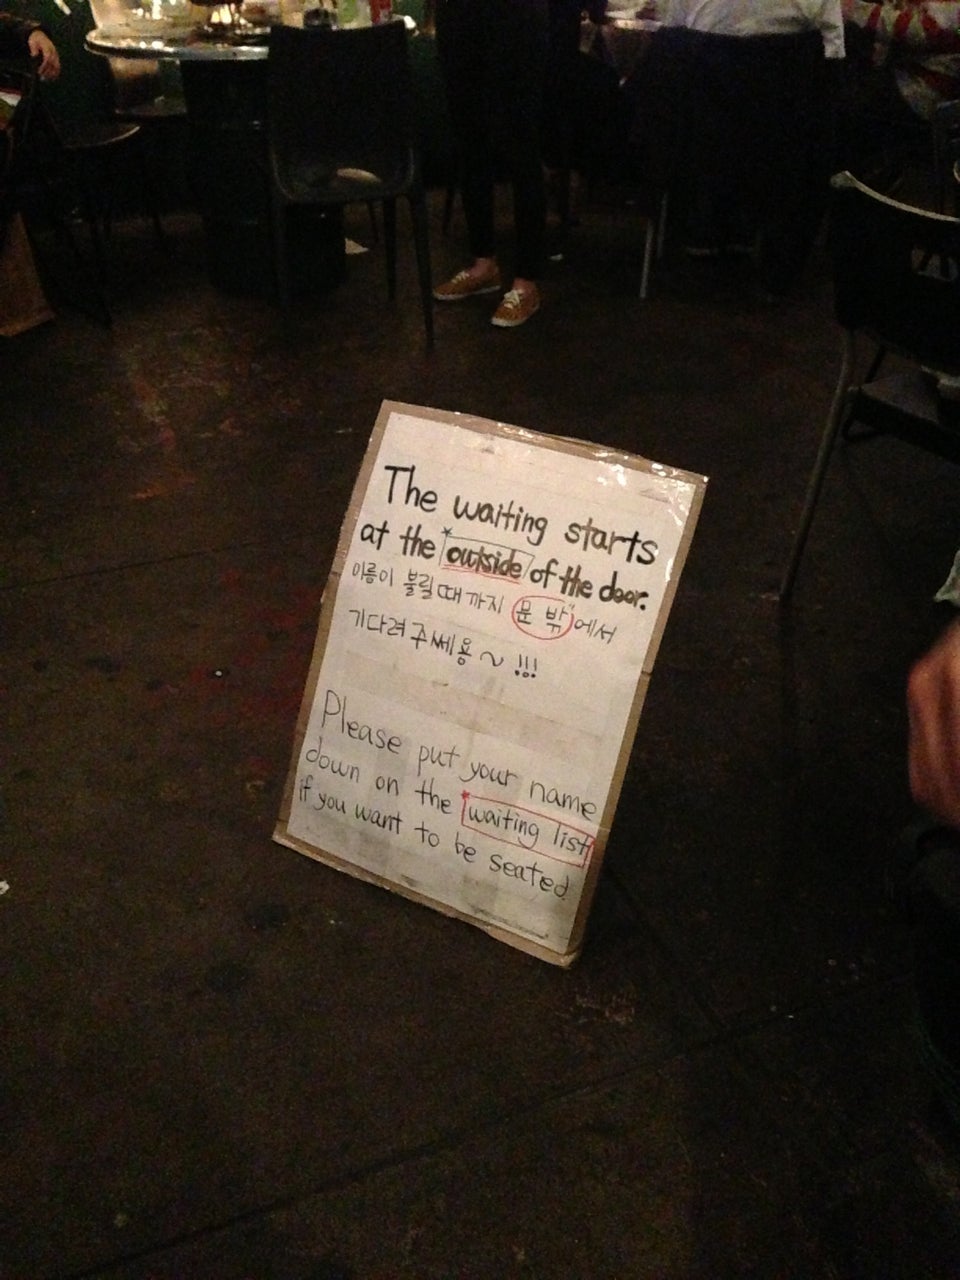 The waiting starts
at the *outside of the door.
이름이 불릴때까지 "문 밖"에서
기다려주쎄용~!!!
Please put your name
down on the *waiting list
if you want to be seated.